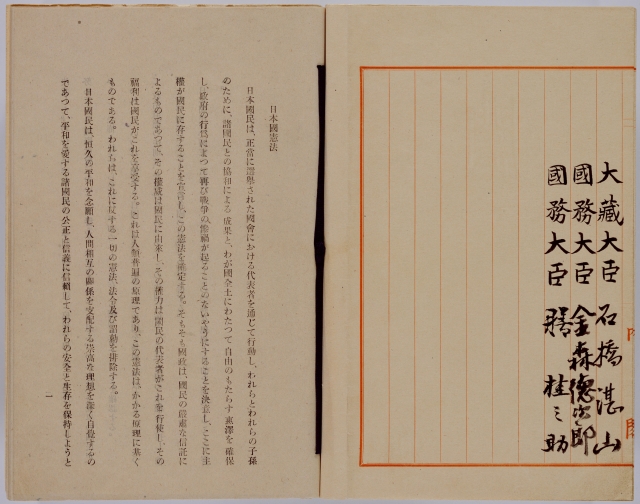 大藏大臣 石橋湛山
國務大臣 金森德次郎
國務大臣 膳桂之助
日本國憲法
日本國民は、正常に選擧された國會における代表者を通じて行動し、われらとわれらの子孫
のために、諸國民との協和による成果と、わが國全土にわたつて自由のもたらす惠澤を確保
し、政府の行爲によつて再び戰爭の慘禍が起ることのないやうにすることを決意し、ここに主
權が國民に存することを宣言し、この憲法を確定する。そもそも國政は、國民の嚴肅な信託に
よるものであつて、その權威は國民に由來し、その權力は國民の代表者がこれを行使し、その
福利は國民がこれを享受する。これは人類普遍の原理であり、この憲法は、かかる原理に基く
ものである。われらは、これに反する一切の憲法、法令及び詔勅を排除する。
日本國民は、恒久の平和を念願し、人間相互の關係を支配する崇高な理想を深く自覺するの
であつて、平和を愛する諸國民の公正と信義に信賴して、われらの安全と生存を保持しようと
一